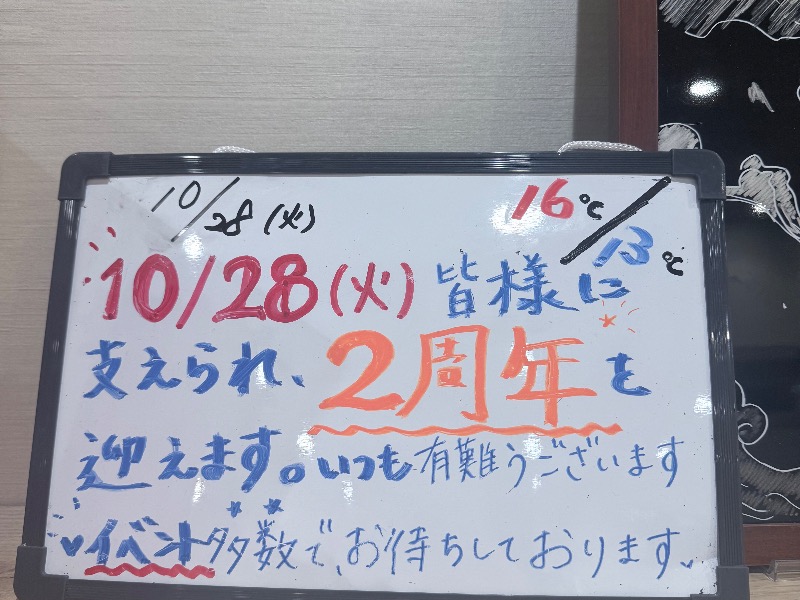 10/28(火) 16℃/13℃
10/28(火)皆様に
支えられ、2周年を
迎えます。いつも有難うございます
イベント多数で、お待ちしております。